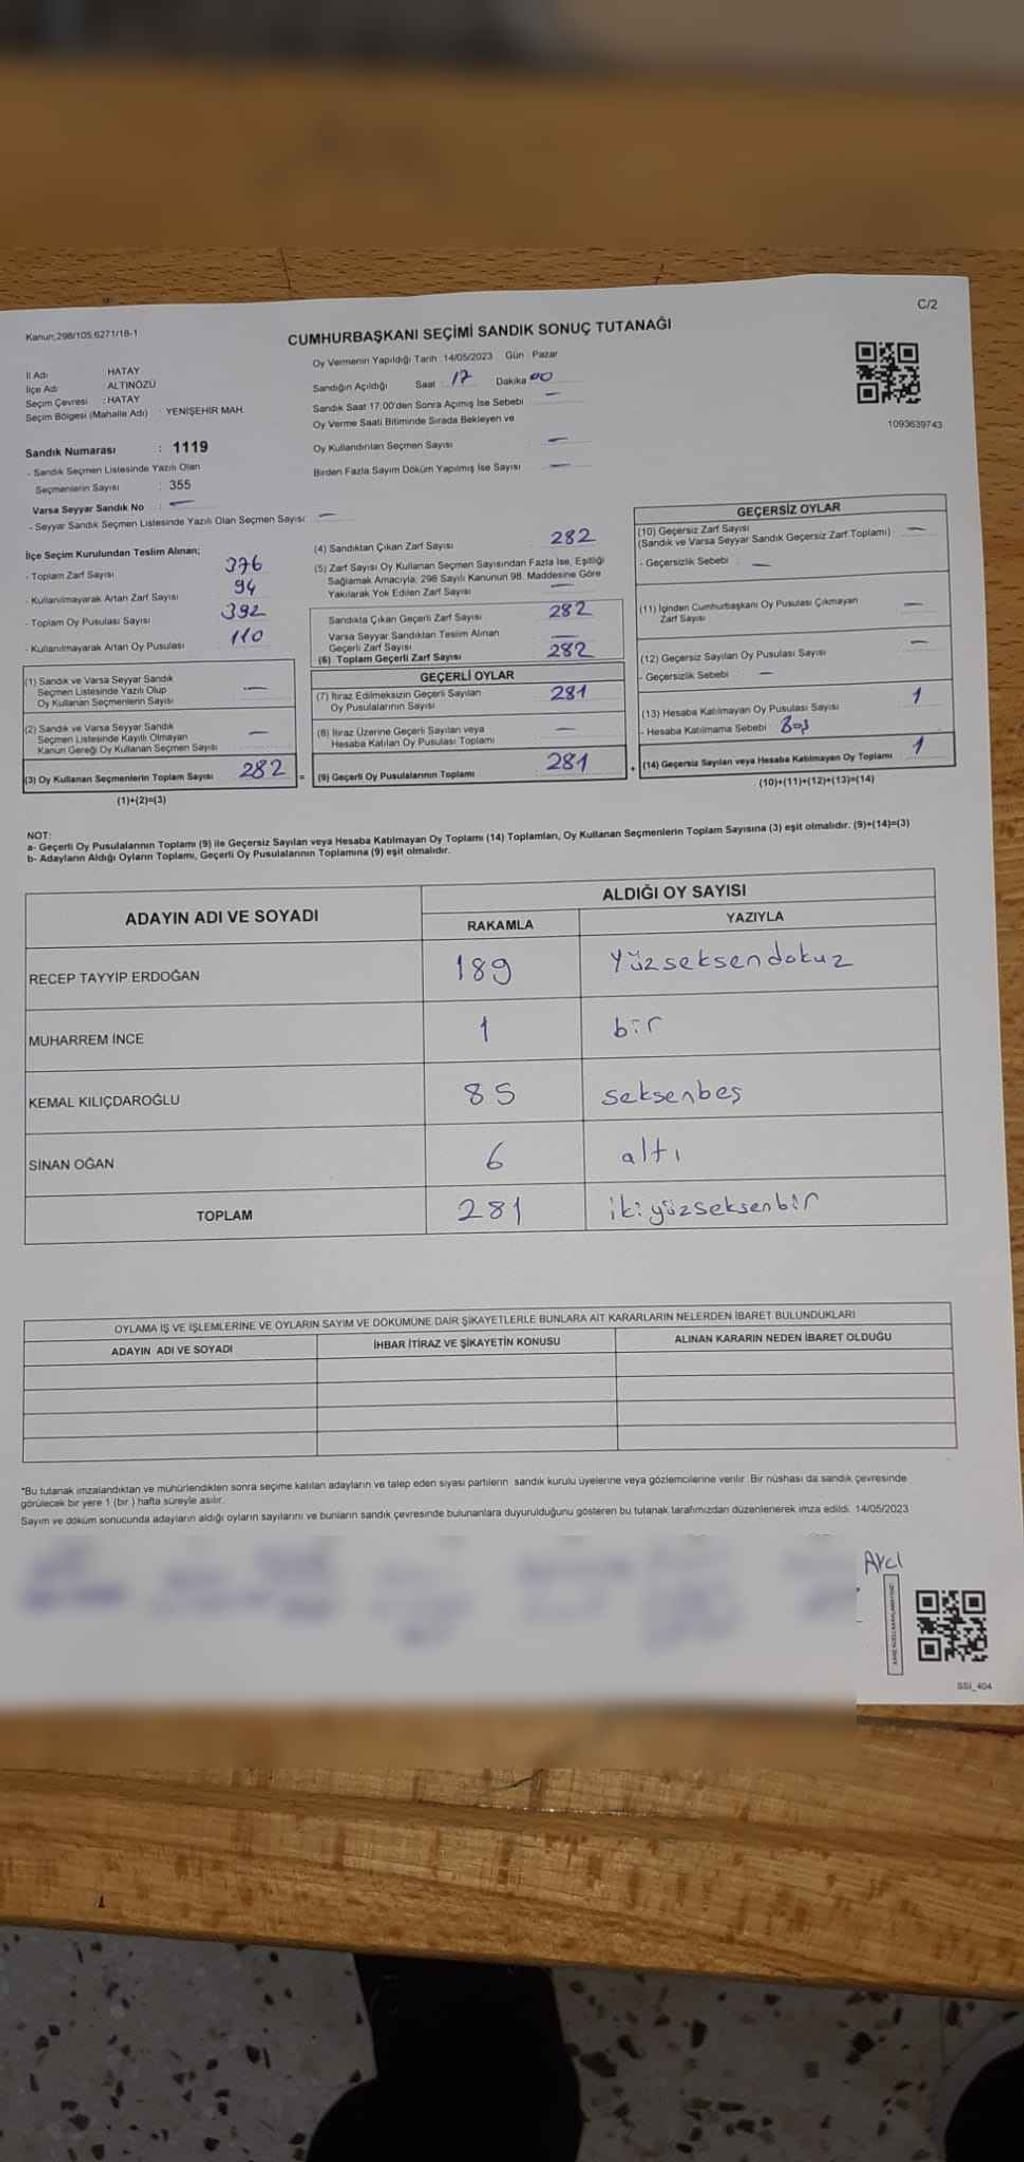 C/2
Kanun:298/105 6271/18-1
CUMHURBAŞKANI SEÇİMİ SANDIK SONUÇ TUTANAĞI
İl Adı : HATAY
İlçe Adı : ALTINÖZÜ
Seçim Çevresi : HATAY
Seçim Bölgesi (Mahalle Adı) : YENİŞEHİR MAH.
Sandık Numarası : 1119
- Sandık Seçmen Listesinde Yazılı Olan
Seçmenlerin Sayısı : 355
Varsa Seyyar Sandık No : —
- Seyyar Sandık Seçmen Listesinde Yazılı Olan Seçmen Sayısı: —
Oy Vermenin Yapıldığı Tarih :14/05/2023 Gün : Pazar
Sandığın Açıldığı Saat : 17 Dakika 00
Sandık Saat 17:00'den Sonra Açılmış İse Sebebi —
Oy Verme Saati Bitiminde Sırada Bekleyen ve
Oy Kullandırılan Seçmen Sayısı —
Birden Fazla Sayım Döküm Yapılmış İse Sayısı —
1093639743
İlçe Seçim Kurulundan Teslim Alınan;
- Toplam Zarf Sayısı 376
- Kullanılmayarak Artan Zarf Sayısı 94
- Toplam Oy Pusulası Sayısı 392
- Kullanılmayarak Artan Oy Pusulası 110
(1) Sandık ve Varsa Seyyar Sandık
Seçmen Listesinde Yazılı Olup
Oy Kullanan Seçmenlerin Sayısı —
(2) Sandık ve Varsa Seyyar Sandık
Seçmen Listesinde Kayıtlı Olmayan
Kanun Gereği Oy Kullanan Seçmen Sayısı —
(3) Oy Kullanan Seçmenlerin Toplam Sayısı 282 =
(1)+(2)=(3)
(4) Sandıktan Çıkan Zarf Sayısı 282
(5) Zarf Sayısı Oy Kullanan Seçmen Sayısından Fazla İse, Eşitliği
Sağlamak Amacıyla, 298 Sayılı Kanunun 98. Maddesine Göre
Yakılarak Yok Edilen Zarf Sayısı —
Sandıkta Çıkan Geçerli Zarf Sayısı 282
Varsa Seyyar Sandıktan Teslim Alınan
Geçerli Zarf Sayısı —
(6) Toplam Geçerli Zarf Sayısı 282
GEÇERLİ OYLAR
(7) İtiraz Edilmeksizin Geçerli Sayılan
Oy Pusulalarının Sayısı 281
(8) İtiraz Üzerine Geçerli Sayılan veya
Hesaba Katılan Oy Pusulası Toplamı —
(9) Geçerli Oy Pusulalarının Toplamı 281 +
GEÇERSİZ OYLAR
(10) Geçersiz Zarf Sayısı
(Sandık ve Varsa Seyyar Sandık Geçersiz Zarf Toplamı) —
- Geçersizlik Sebebi —
(11) İçinden Cumhurbaşkanı Oy Pusulası Çıkmayan
Zarf Sayısı —
(12) Geçersiz Sayılan Oy Pusulası Sayısı —
- Geçersizlik Sebebi —
(13) Hesaba Katılmayan Oy Pusulası Sayısı 1
- Hesaba Katılmama Sebebi Boş
(14) Geçersiz Sayılan veya Hesaba Katılmayan Oy Toplamı 1
(10)+(11)+(12)+(13)=(14)
NOT:
a- Geçerli Oy Pusulalarının Toplamı (9) ile Geçersiz Sayılan veya Hesaba Katılmayan Oy Toplamı (14) Toplamları, Oy Kullanan Seçmenlerin Toplam Sayısına (3) eşit olmalıdır. (9)+(14)=(3)
b- Adayların Aldığı Oyların Toplamı, Geçerli Oy Pusulalarının Toplamına (9) eşit olmalıdır.
ADAYIN ADI VE SOYADI
ALDIĞI OY SAYISI
RAKAMLA YAZIYLA
RECEP TAYYİP ERDOĞAN 189 Yüzseksendokuz
MUHARREM İNCE 1 bir
KEMAL KILIÇDAROĞLU 85 seksenbeş
SİNAN OĞAN 6 altı
TOPLAM 281 ikiyüzseksenbir
OYLAMA İŞ VE İŞLEMLERİNE VE OYLARIN SAYIM VE DÖKÜMÜNE DAİR ŞİKAYETLERLE BUNLARA AİT KARARLARIN NELERDEN İBARET BULUNDUKLARI
ADAYIN ADI VE SOYADI İHBAR İTİRAZ VE ŞİKAYETİN KONUSU ALINAN KARARIN NEDEN İBARET OLDUĞU
*Bu tutanak imzalandıktan ve mühürlendikten sonra seçime katılan adayların ve talep eden siyasi partilerin sandık kurulu üyelerine veya gözlemcilerine verilir. Bir nüshası da sandık çevresinde
görülecek bir yere 1 (bir ) hafta süreyle asılır.
Sayım ve döküm sonucunda adayların aldığı oyların sayılarını ve bunların sandık çevresinde bulunanlara duyurulduğunu gösteren bu tutanak tarafımızdan düzenlenerek imza edildi. 14/05/2023
SSI_404